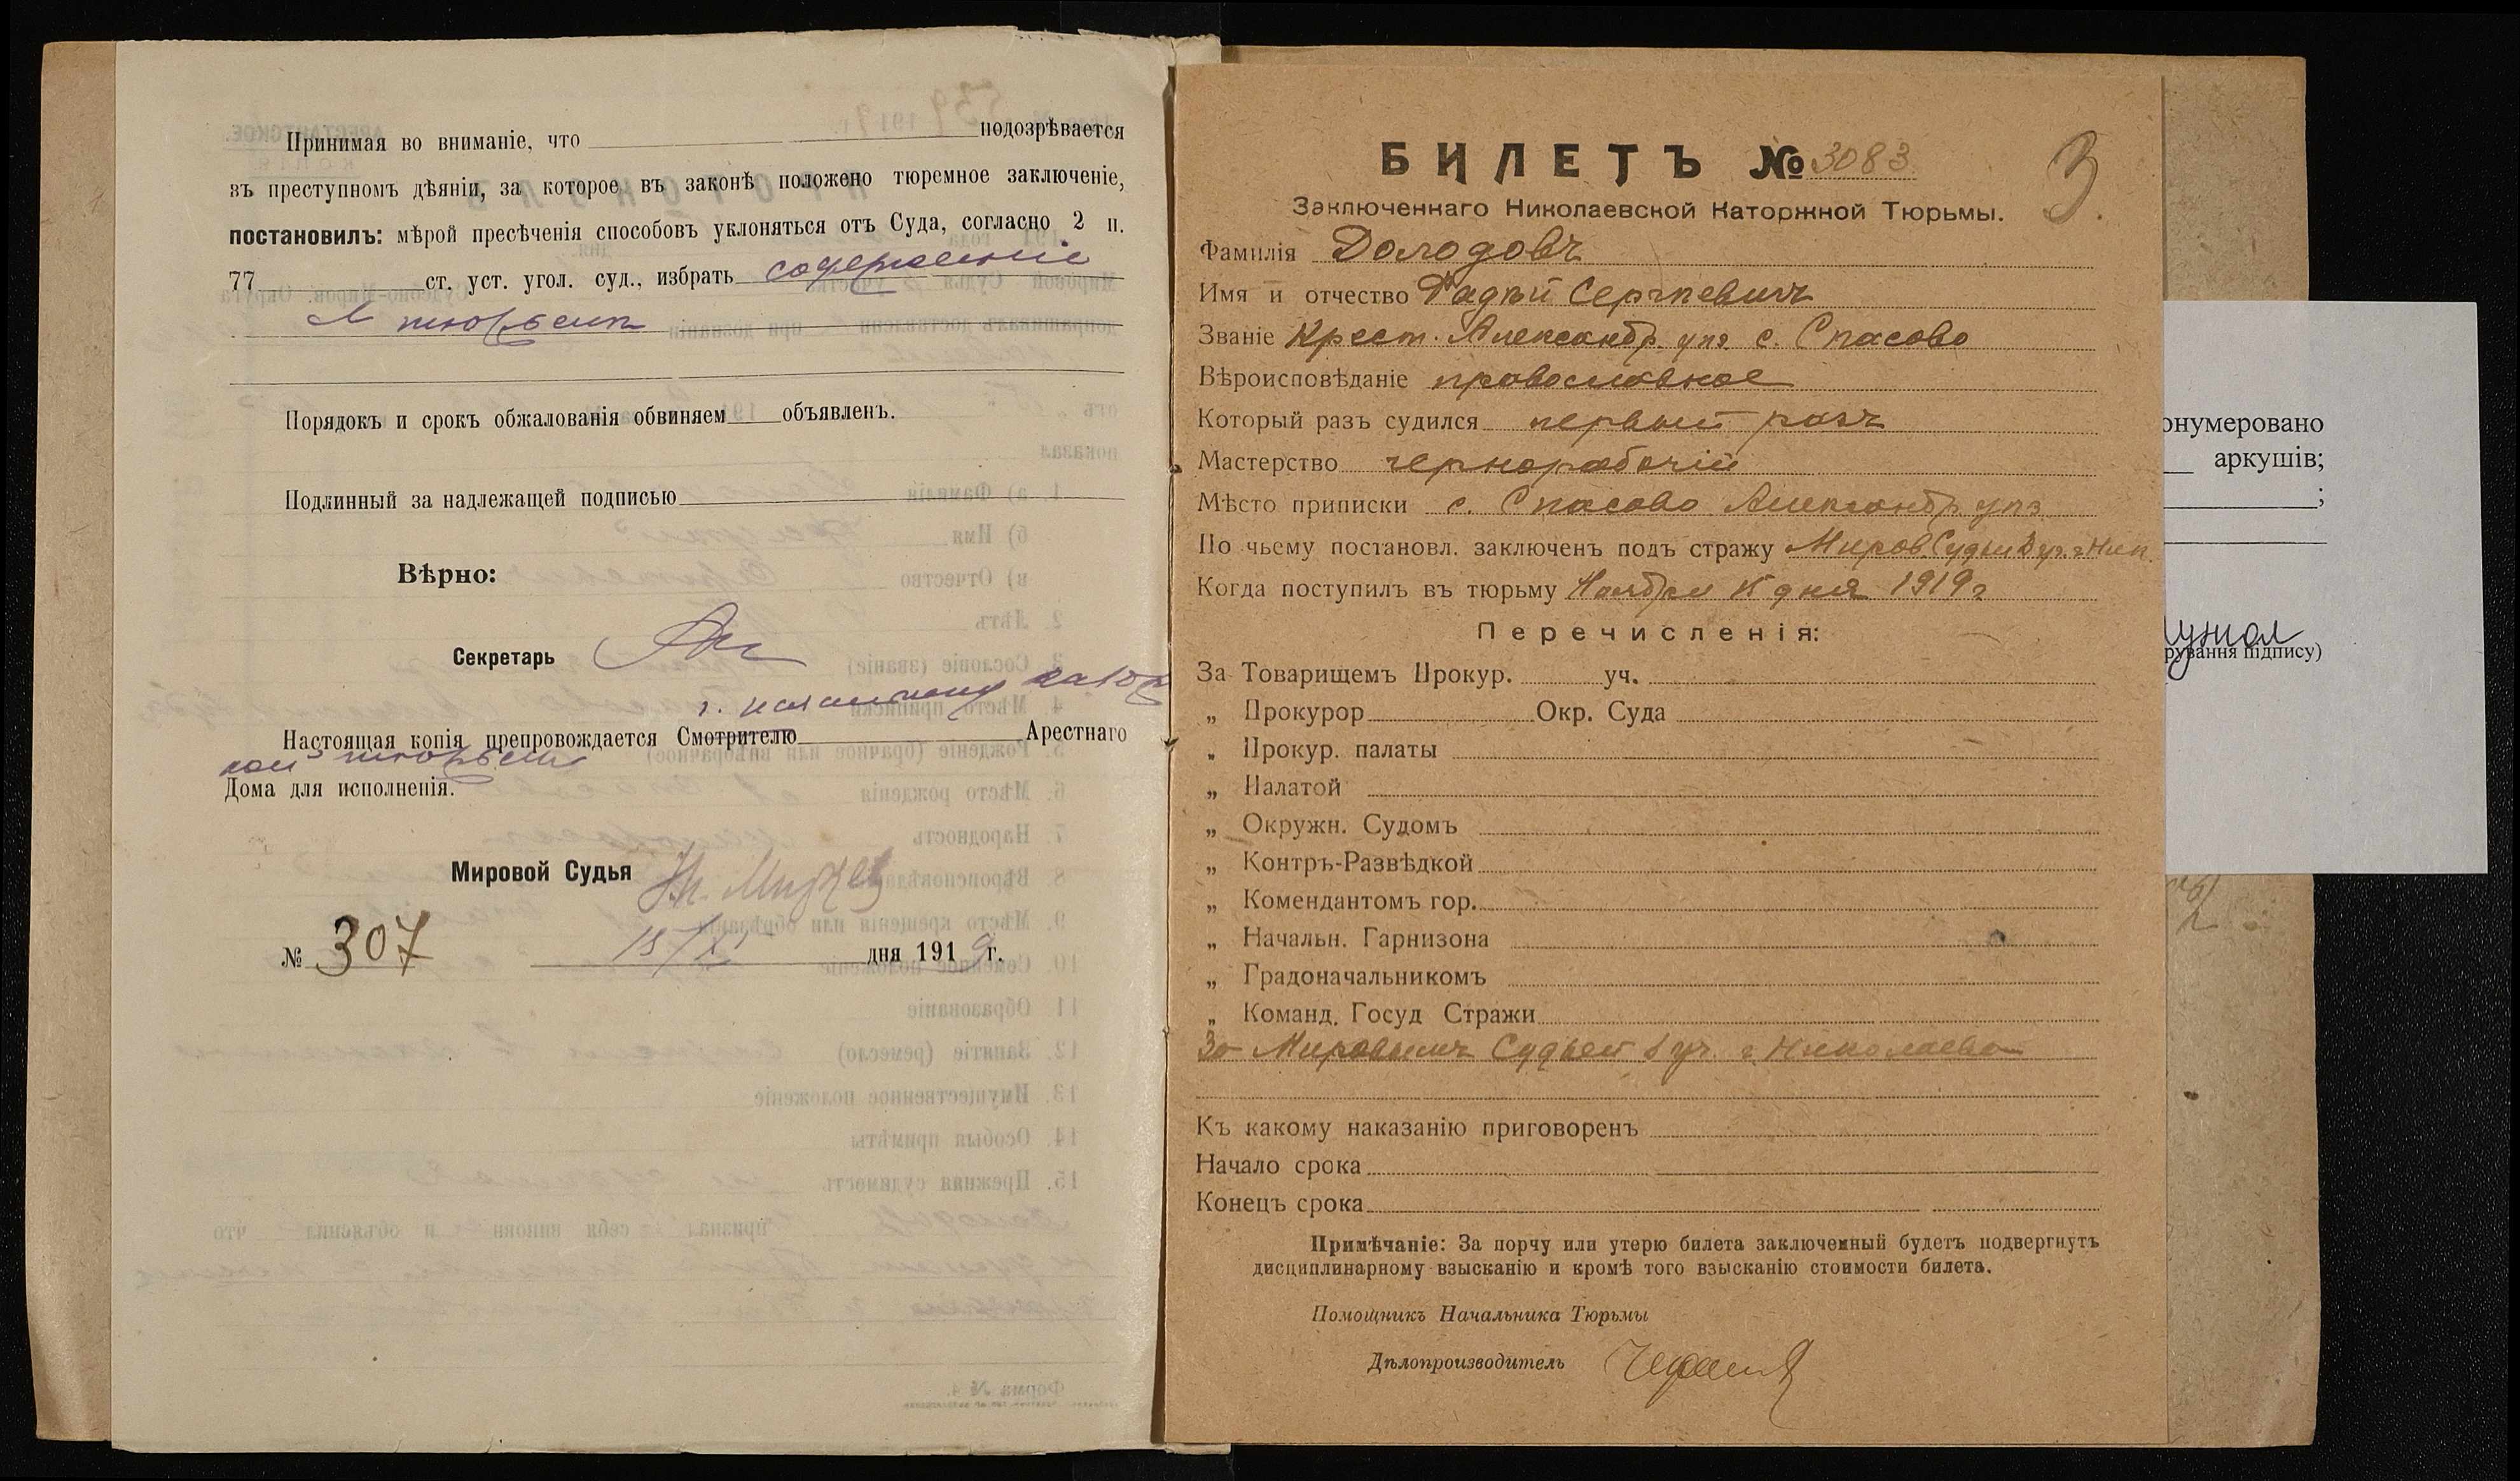 Принимая во вниманіе, что подозрѣвается
въ преступномъ дѣяніи, за которое въ законѣ положено тюремное заключеніе,
постановилъ: мѣрой пресѣченія способовъ уклоняться отъ Суда, согласно 2 п.
77 ст. уст. угол. суд., избрать содержаніе
в тюрьмѣ
Порядокъ и срокъ обжалованія обвиняем объявленъ.
Подлинный за надлежащей подписью
Вѣрно:
Секретарь
г. начальнику катор
Настоящая копія препровождается Смотрителю Арестнаго
ной тюрьмы
Дома для исполненія.
Мировой Судья
№ 307 15/XI дня 1919 г.
БИЛЕТЪ № 3083
3.
Заключеннаго Николаевской Каторжной Тюрьмы.
Фамилія
Имя и отчество Фадѣй Сергѣевичъ
Званіе Крест. Александр. уѣз. с. Спасово
Вѣроисповѣданіе православное
Который разъ судился первый разъ
Мастерство чернорабочій
Мѣсто приписки с. Спасово Александр. уѣз.
По чьему постановл. заключенъ подъ стражу Миров. Судьи уч. г. Ник.
Когда поступилъ въ тюрьму Ноября 15 дня 1919 г
Перечисленія:
За Товарищемъ Прокур. уч.
„ Прокурор Окр. Суда
„ Прокур. палаты
„ Палатой
„ Окружн. Судомъ
„ Контръ-Развѣдкой
„ Комендантомъ гор.
„ Начальн. Гарнизона
„ Градоначальникомъ
„ Команд. Госуд Стражи
За Мировымъ Судьей 6 уч. г. Николаева
Къ какому наказанію приговоренъ
Начало срока
Конецъ срока
Примѣчаніе: За порчу или утерю билета заключенный будетъ подвергнутъ
дисциплинарному взысканію и кромѣ того взысканію стоимости билета.
Помощникъ Начальника Тюрьмы
Дѣлопроизводитель
онумеровано
аркушів;
;
рування підпису)